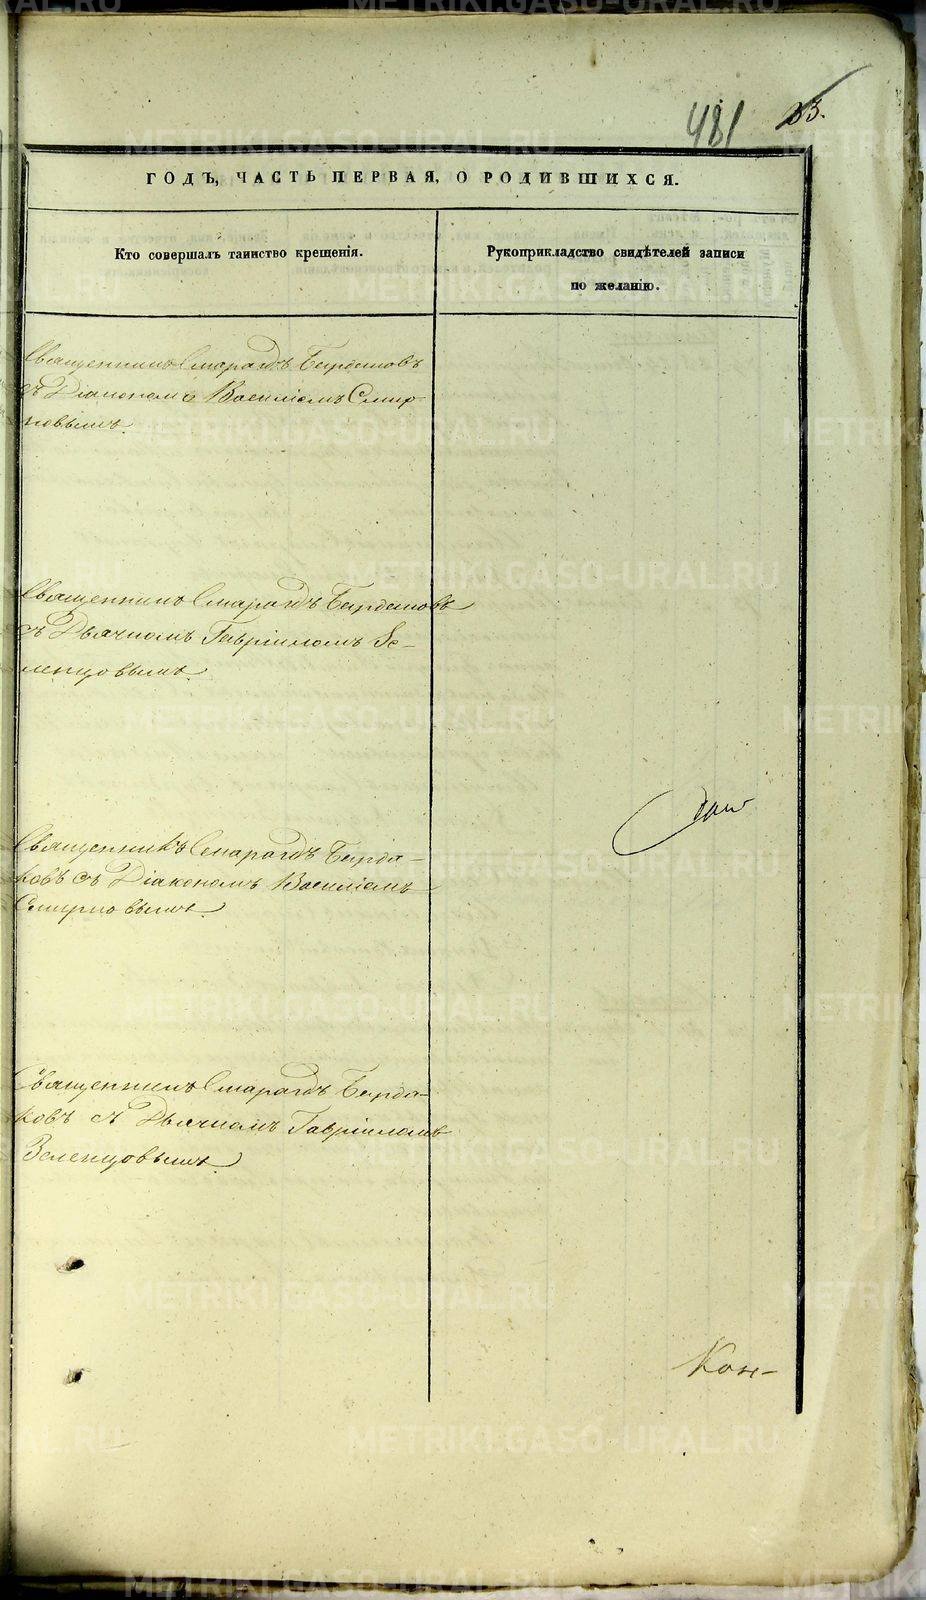 481 83.
ГОДЪ, ЧАСТЬ ПЕРВАЯ, О РОДИВШИХСЯ.
Кто совершалъ таинство крещенія.
Рукоприкладство свидѣтелей записи
по желанію.
Священникъ Смарагдъ Бурдаковъ
съ Діакономъ Василіемъ Смир-
новымъ.
Священникъ Смарагдъ Бурдаковъ
съ Дьячкомъ Гавріиломъ Зе-
ленцовымъ.
Священникъ Смарагдъ Бурда-
ковъ съ Діакономъ Василіемъ
Смирновымъ.
Священникъ Смарагдъ Бурда-
ковъ съ Дьячкомъ Гавріиломъ
Зеленцовымъ.
Кон-
METRIKI.GASO-URAL.RU